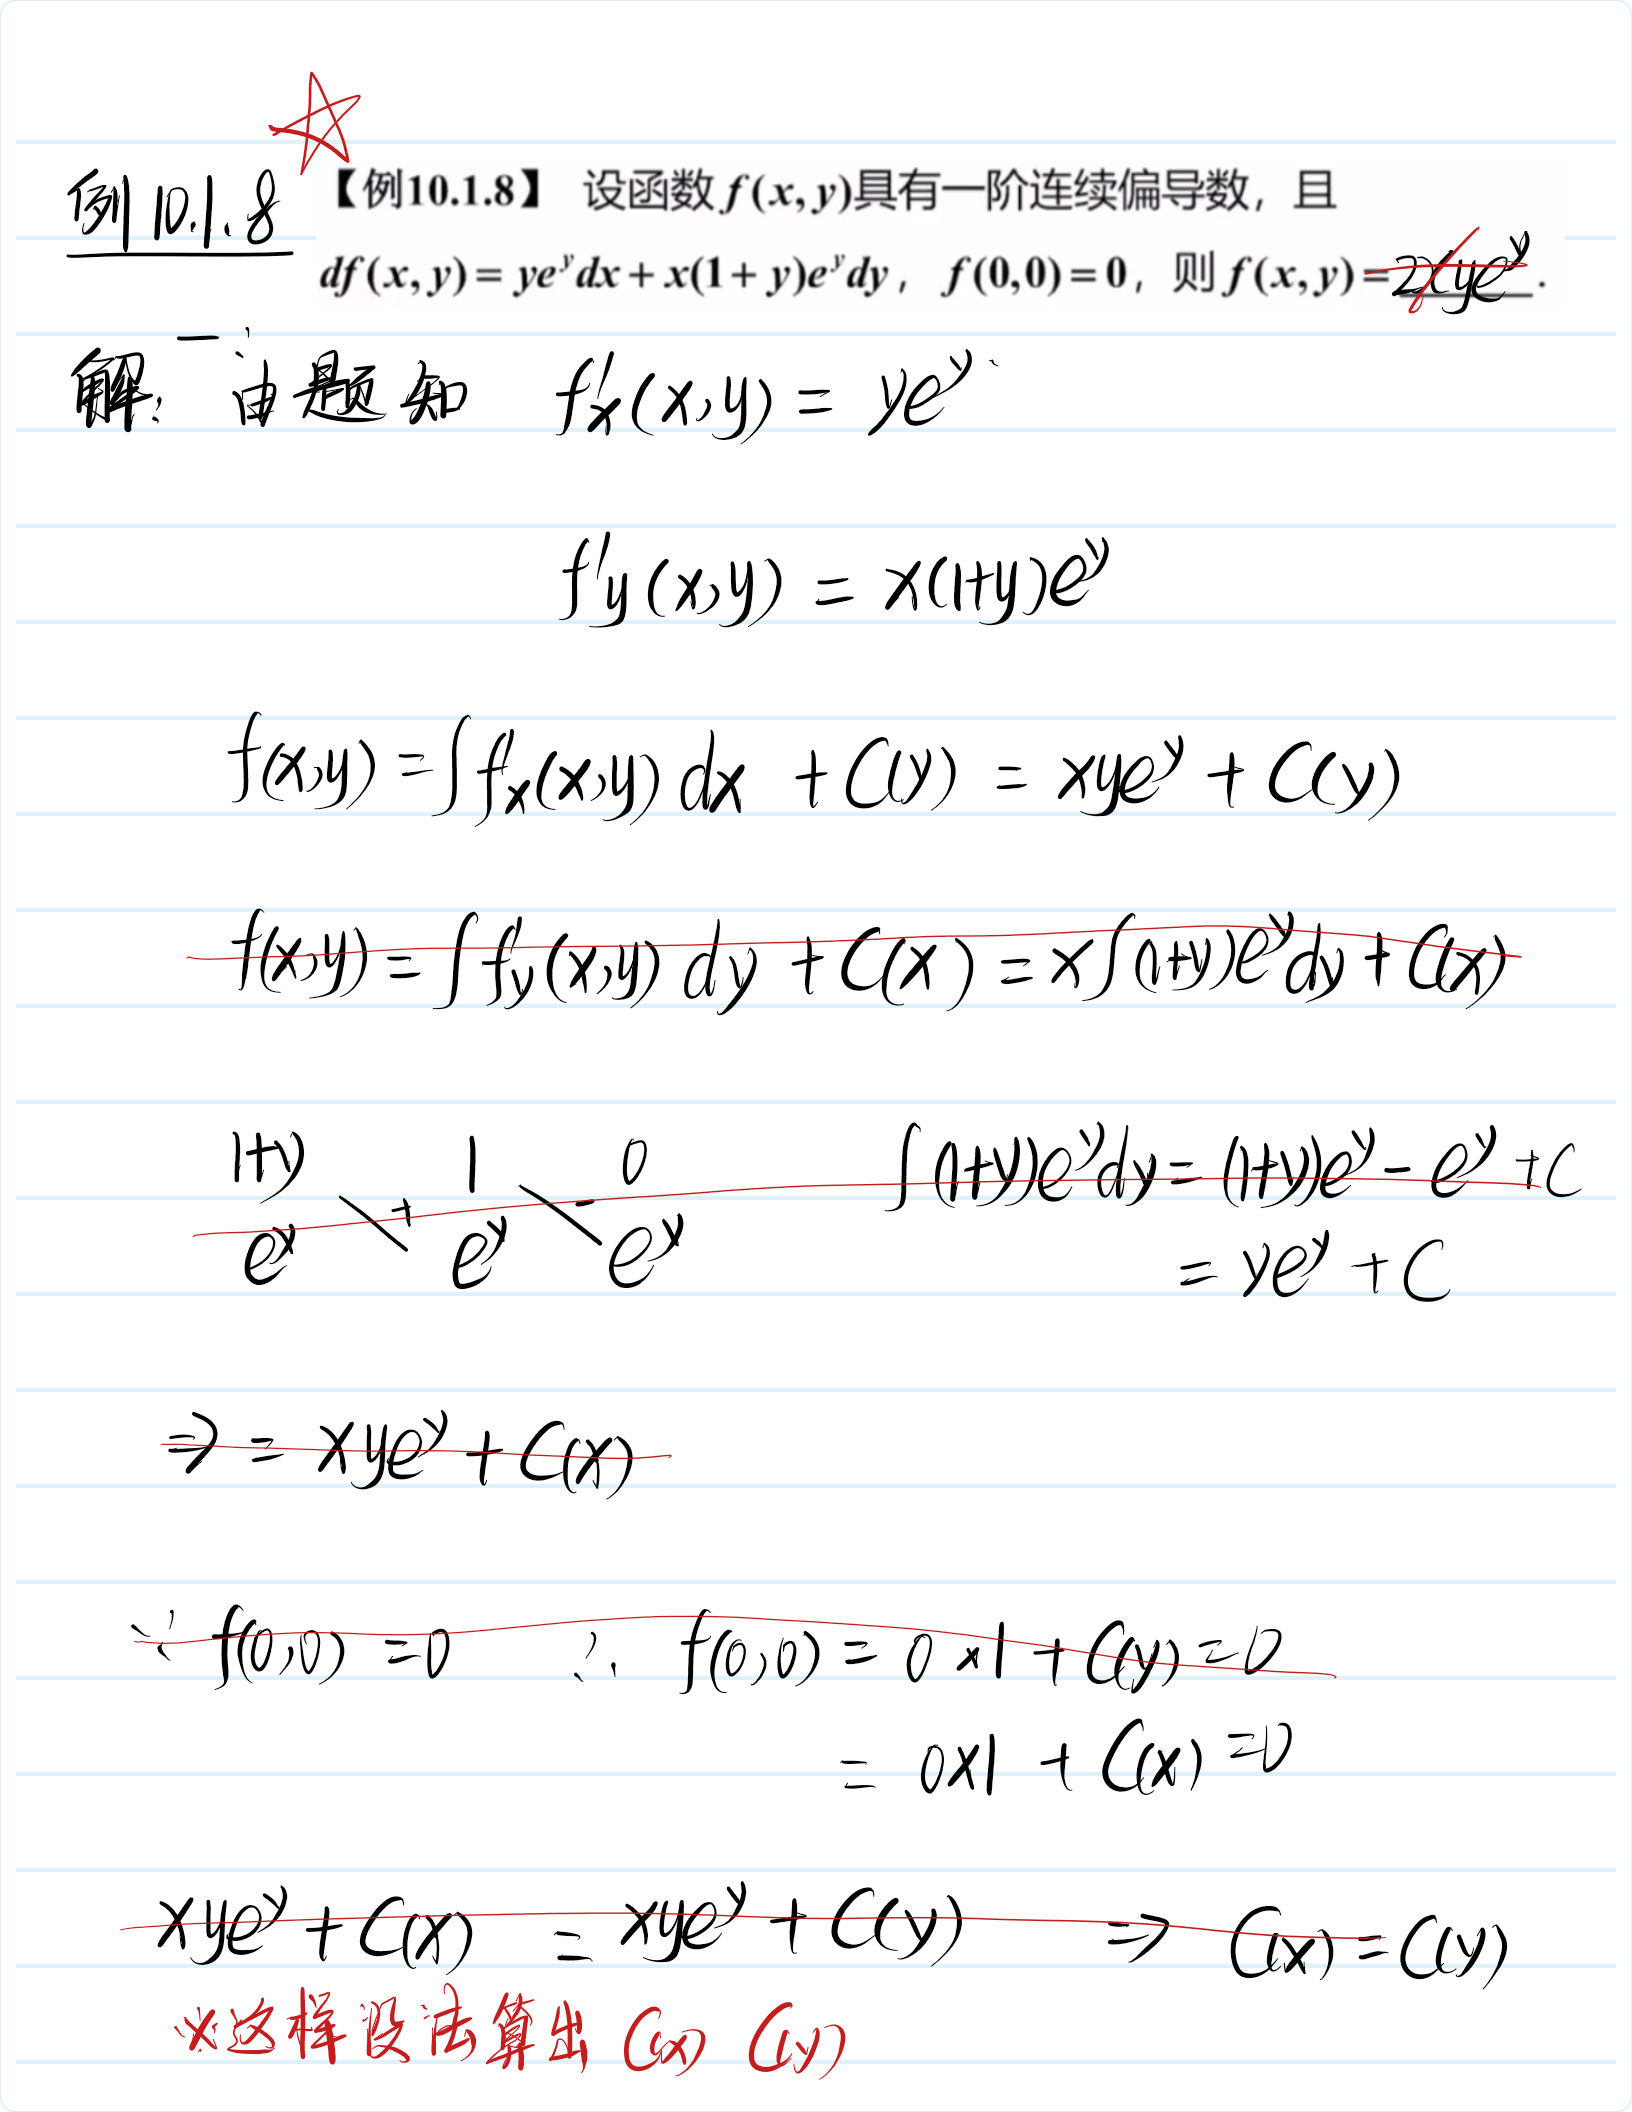 例10.1.8
【例10.1.8】 设函数f(x,y)具有一阶连续偏导数，且
df(x,y)=ye^y dx+x(1+y)e^y dy，f(0,0)=0，则f(x,y)=2xye^y.
解: 由题知 f'x(x,y) = ye^y
f'y(x,y) = x(1+y)e^y
f(x,y) = ∫f'x(x,y) dx + C(y) = xye^y + C(y)
f(x,y) = ∫f'y(x,y) dy + C(x) = x∫(1+y)e^y dy + C(x)
1+y 1 0 ∫(1+y)e^y dy = (1+y)e^y - e^y + C
+ -
e^y e^y e^y = ye^y + C
⇒ = xye^y + C(x)
∵ f(0,0) = 0 ∴ f(0,0) = 0×1 + C(y) = 0
= 0×1 + C(x) = 0
xye^y + C(x) = xye^y + C(y) ⇒ C(x) = C(y)
※这样没法算出 C(x) C(y)